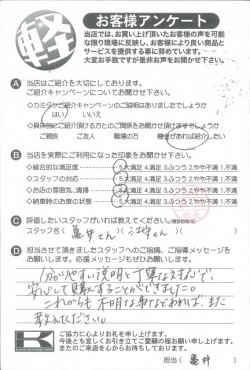 軽
お客様アンケート
当店では、お買い上げ頂いたお客様の声を可能
な限り現場に反映し、お客様により良い商品と
サービスを提供する事に努めています。
大変お手数ですが是非お声をお聞かせ下さい。
A 当店はご紹介を大切にしております。
ご紹介キャンペーンについてお聞かせ下さい
◇カミタケご紹介キャンペーンのご説明はありましたでしょうか
はい いいえ
◇具体的にご紹介頂ける方とのご関係をお聞かせ頂けますでしょうか
ご親族 ご友人 職場の方 機会があれば紹介したい
B 当店を実際にご利用になった印象をお聞かせ下さい。
◇総合的な満足度 5.大満足 4.満足 3.ふつう 2.やや不満 1.不満
◇スタッフの対応 5.大満足 4.満足 3.ふつう 2.やや不満 1.不満
◇お店の雰囲気、清掃 5.大満足 4.満足 3.ふつう 2.やや不満 1.不満
◇納車時のお車の状態 5.大満足 4.満足 3.ふつう 2.やや不満 1.不満
C 評価したいスタッフがいれば教えてください。
スタッフ名( 亀井さん )( さん )
D 担当させて頂きましたスタッフへのご指摘、ご指導メッセージを
お願いします。応援メッセージもぜひお願いします。
分かりやすい説明と丁寧な対応で、
安心して購入することができました。
これからも不明な事などあれば、また
教えてください。
ご協力に心よりお礼を申し上げます。
今後とも宜しくお引き立てご愛顧の程お願い申し上げます。
またのご来店を心からお待ちしております。
担当( 亀井 )